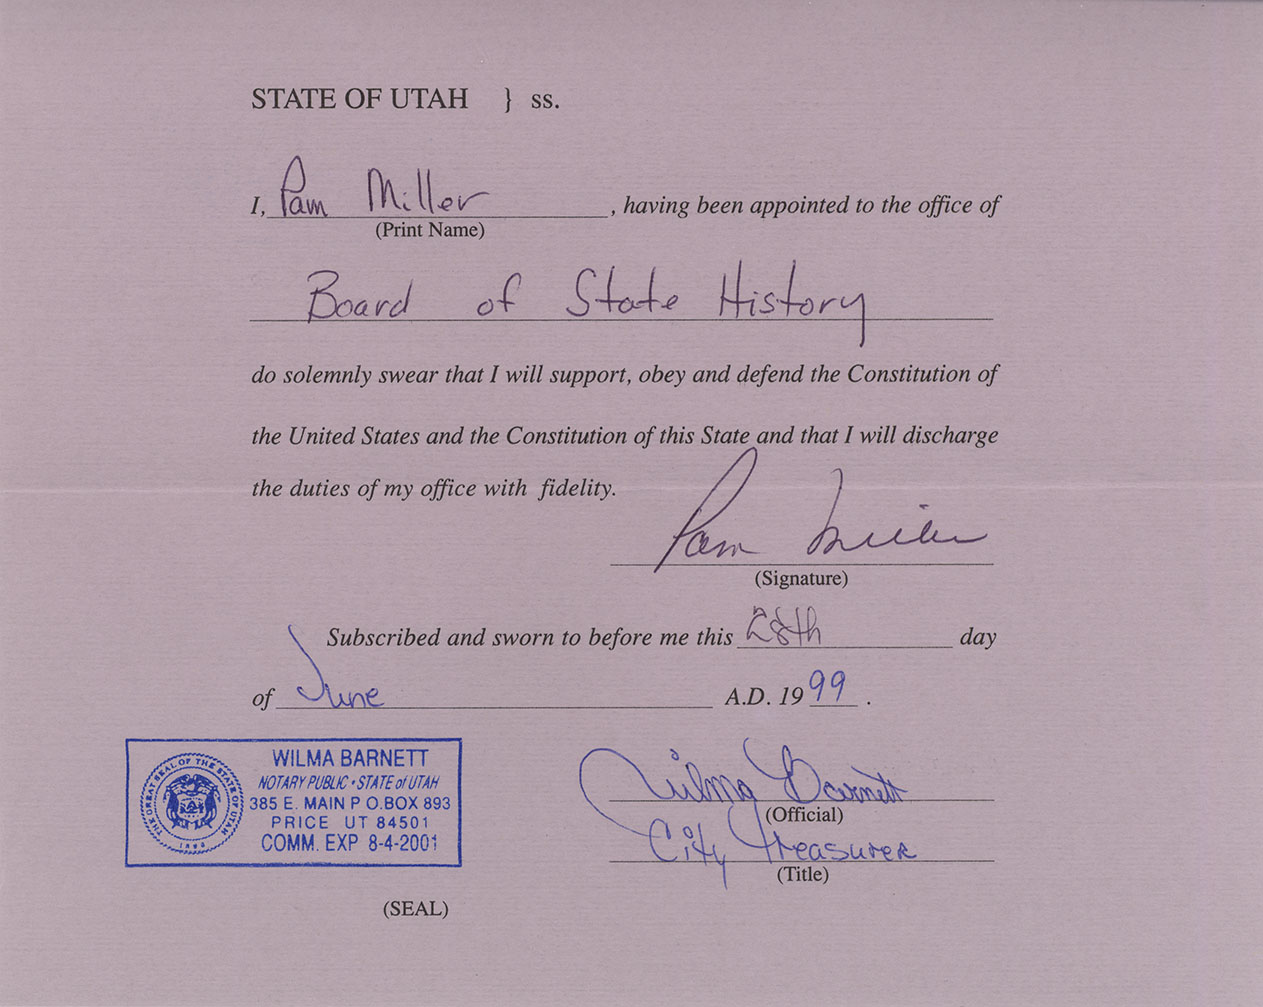 STATE OF UTAH } ss.
I, Pam Miller, having been appointed to the office of
(Print Name)
Board of State History
do solemnly swear that I will support, obey and defend the Constitution of
the United States and the Constitution of this State and that I will discharge
the duties of my office with fidelity.
Pam Miller
(Signature)
Subscribed and sworn to before me this 28th day
of June A.D. 1999.
THE GREAT SEAL OF THE STATE OF UTAH
1896
WILMA BARNETT
NOTARY PUBLIC • STATE of UTAH
385 E. MAIN P O.BOX 893
PRICE UT 84501
COMM. EXP 8-4-2001
Wilma Barnett
(Official)
City Treasurer
(Title)
(SEAL)